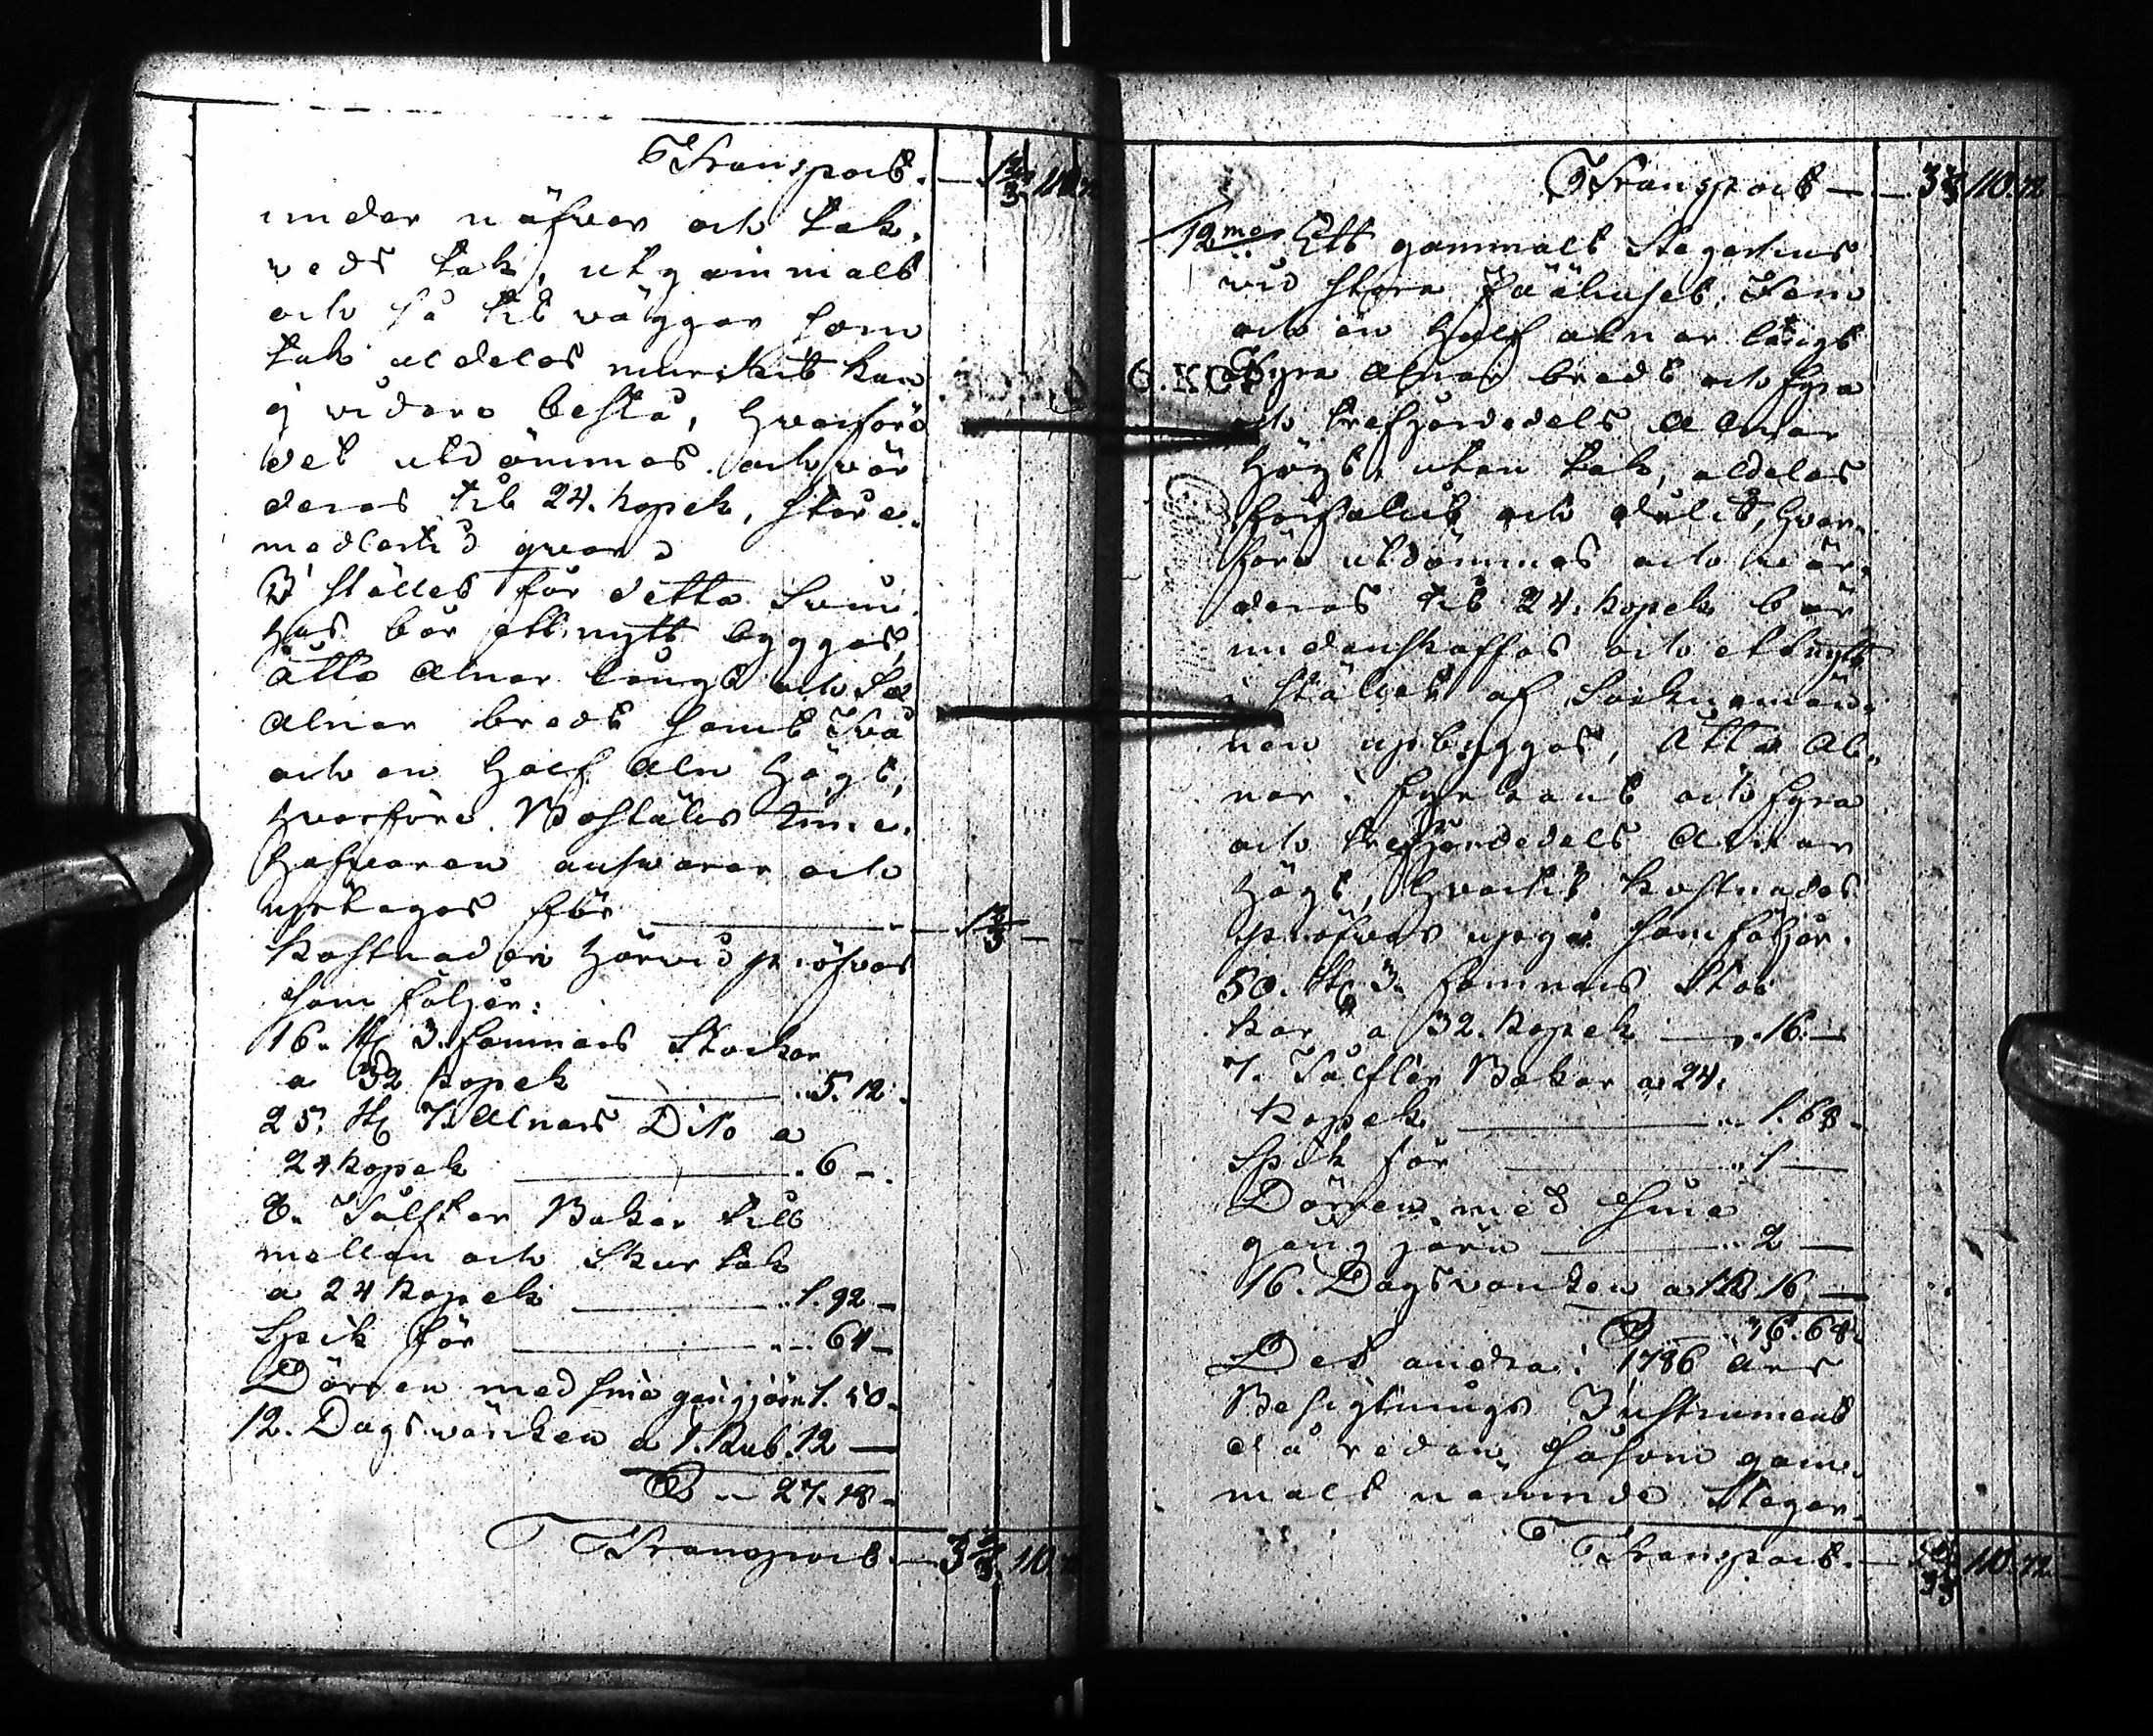 Transport. — 1 2/3 110.72
under näfver och tak-
veds tak, utgammalt
och så til väggar som
tak aldeles murknit kan
ej vidare bestå, hvarföre
det utdömmes och vär
deras til 24. kopek, stora.
medlertid qvar.
I stället för detta Svin
hus bör ett nytt byggas,
Åtta Alnar långt och Sex
Alnar bredt samt Två
och en Half Aln Högt,
hvarföre Boställes Inne-
hafvaren answarar och
uptages för — 1 2/3 —
Kostnaden härvid pröfvas
som följer:
16. st 3. famnars Stockar
a 32 kopek — 5.12.
25. st 7. Alnars Dito a
24 kopek — 6 —
8. Tålfter Bakar till
mellan och Skur tak
a 24 kopek — 1.92 —
Spik för — 64 —
Dörren med sine gångjärn 1.50.
12. Dagsvärken a 1. Rub. 12 —
27.18.
Transport. — 3 1/3 110.72
Transport — 3 1/3 110.72
12mo Ett gammalt Stegerhus
vid stora Fäähuset, Fem
och en Half alnar långt
Fyra Alnar bredt och fyra
och trefjerdedels Alnar
Högt, utan tak, aldeles
förfallit och oduligt, hvar-
före utdömmes och wär-
deras til 24. kopek bör
undanskaffas och ett nytt
i stället af Socknemän-
nen upbyggas, Åtta Al-
nar i fyrkant och fyra
och trefjerdedels Alnar
Högt, hvartil kostnaden
pröfvas upgå som följer.
50. st 3. famnars Stoc
kar a 32. kopek — 16. —
7. Tålfter Bakar a 24.
kopek — 1.68 —
Spik för — 1 —
Dörren med sine
gångjärn — 2 —
16. Dagsvärken a 1 R. 16 —
36.68.
Det andra i 1786 års
Besigtnings Instrument
då redan såsom gam-
malt nämnde Steger-
Transport. — 3 1/3 110.72.